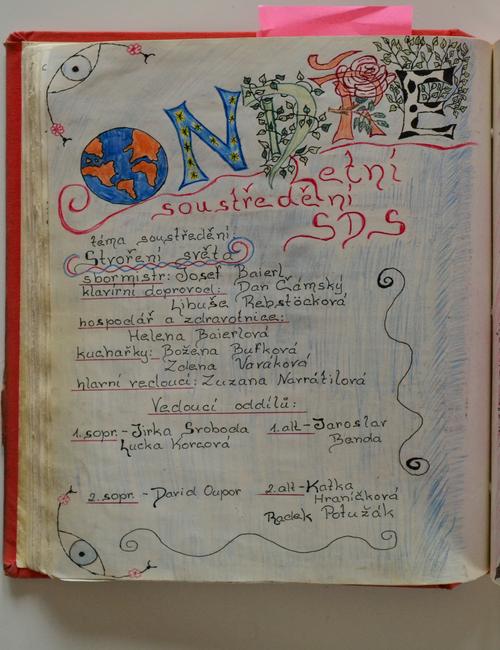 ONDŘEJ
Letní
soustředění
SDS
téma soustředění:
Stvoření světa
sbormistr: Josef Baierl
klavírní doprovod: Dan Čámský
Libuše Rebstöcková
hospodář a zdravotnice:
Helena Baierlová
kuchařky: Božena Bufková
Zdena Varáková
hlavní vedoucí: Zuzana Navrátilová
Vedoucí oddílů:
1.sopr. - Jirka Svoboda 1.alt - Jaroslav
Lucka Korcová Benda
2.sopr. - David Oupor 2.alt - Katka
Hraničková
Radek Potužák